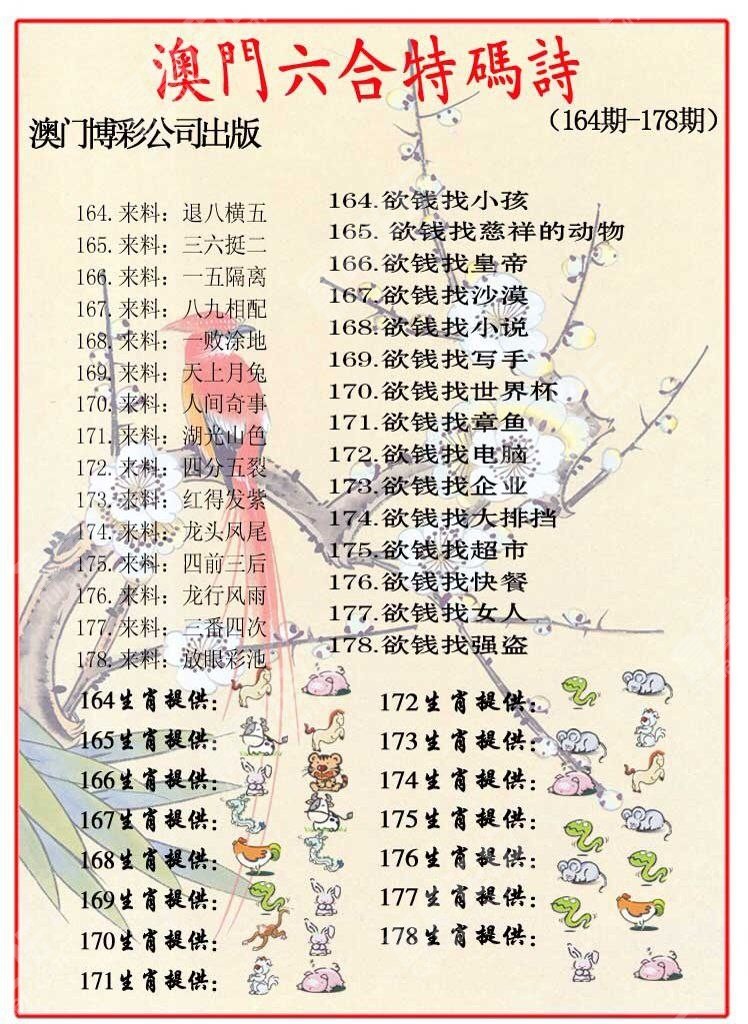 澳門六合特碼詩
澳门博彩公司出版
（164期-178期）
164.来料：退八横五
165.来料：三六挺二
166.来料：一五隔离
167.来料：八九相配
168.来料：一败涂地
169.来料：天上月兔
170.来料：人间奇事
171.来料：湖光山色
172.来料：四分五裂
173.来料：红得发紫
174.来料：龙头风尾
175.来料：四前三后
176.来料：龙行风雨
177.来料：三番四次
178.来料：放眼彩池
164.欲钱找小孩
165. 欲钱找慈祥的动物
166.欲钱找皇帝
167.欲钱找沙漠
168.欲钱找小说
169.欲钱找写手
170.欲钱找世界杯
171.欲钱找章鱼
172.欲钱找电脑
173.欲钱找企业
174.欲钱找大排挡
175.欲钱找超市
176.欲钱找快餐
177.欲钱找女人
178.欲钱找强盗
164生肖提供：
165生肖提供：
166生肖提供：
167生肖提供：
168生肖提供：
169生肖提供：
170生肖提供：
171生肖提供：
172生肖提供：
173生肖提供：
174生肖提供：
175生肖提供：
176生肖提供：
177生肖提供：
178生肖提供：